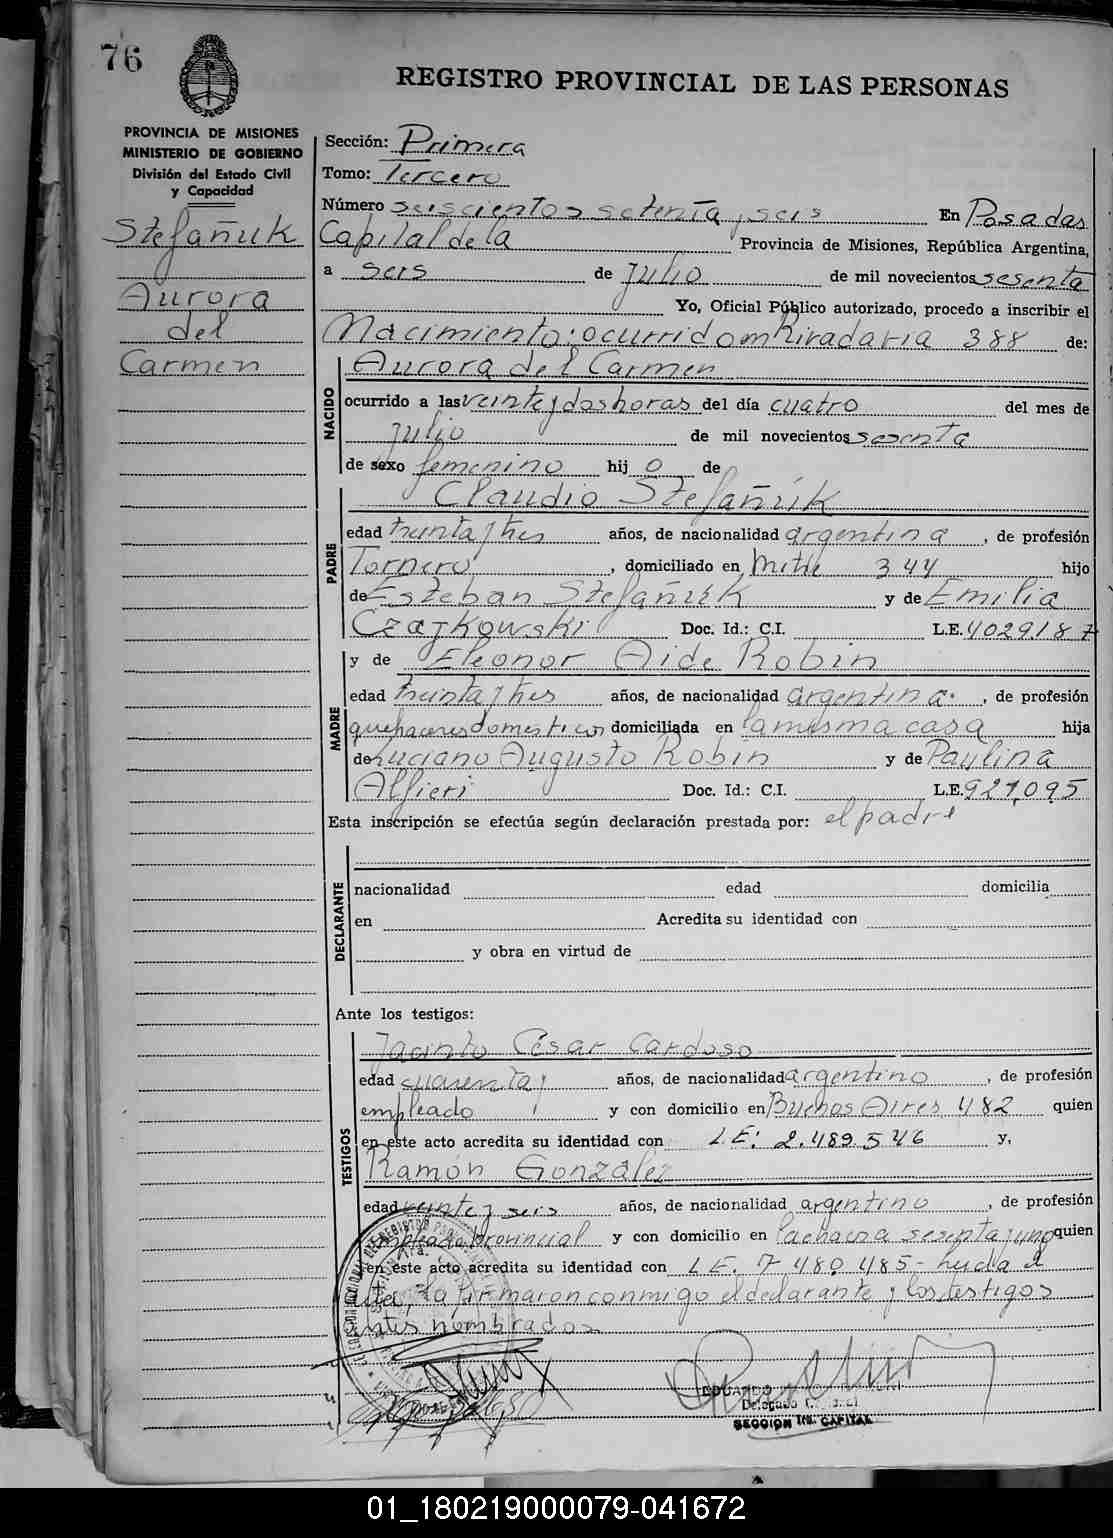 76
REGISTRO PROVINCIAL DE LAS PERSONAS
PROVINCIA DE MISIONES
MINISTERIO DE GOBIERNO
División del Estado Civil
y Capacidad
Stefañuk
Aurora
del
Carmen
Sección: Primera
Tomo: Tercero
Número seiscientos setenta y seis En Posadas
Capital de la Provincia de Misiones, República Argentina,
a seis de Julio de mil novecientos sesenta
Yo, Oficial Público autorizado, procedo a inscribir el
Nacimiento: ocurrido en Rivadavia 388 de:
NACIDO
Aurora del Carmen
ocurrido a las veinte y dos horas del día cuatro del mes de
Julio de mil novecientos sesenta
de sexo femenino hij o de
PADRE
Claudio Stefañuk
edad treinta y tres años, de nacionalidad argentina, de profesión
Tornero, domiciliado en Mitre 344 hijo
de Esteban Stefañuk y de Emilia
Czajkowski Doc. Id.: C.I. L.E. 4029187
MADRE
y de Eleonor Aide Robin
edad treinta y tres años, de nacionalidad argentina, de profesión
quehaceres domesticos domiciliada en la misma casa hija
de Luciano Augusto Robin y de Paulina
Alfieri Doc. Id.: C.I. L.E. 921.095
Esta inscripción se efectúa según declaración prestada por: el padre
DECLARANTE
nacionalidad edad domicilia
en Acredita su identidad con
y obra en virtud de
Ante los testigos:
TESTIGOS
Jacinto César Cardoso
edad cuarenta y años, de nacionalidad argentino, de profesión
empleado y con domicilio en Buenos Aires 482 quien
en este acto acredita su identidad con L.E: 2.489.546 y,
Ramón González
edad veinte y seis años, de nacionalidad argentino, de profesión
empleado provincial y con domicilio en la chacra sesenta y uno quien
en este acto acredita su identidad con L.E. 7.480.485- leida el
acta, la firmaron conmigo el declarante y los testigos
antes nombrados
EDUARDO
Delegado
SECCION 1ra. CAPITAL
01_180219000079-041672